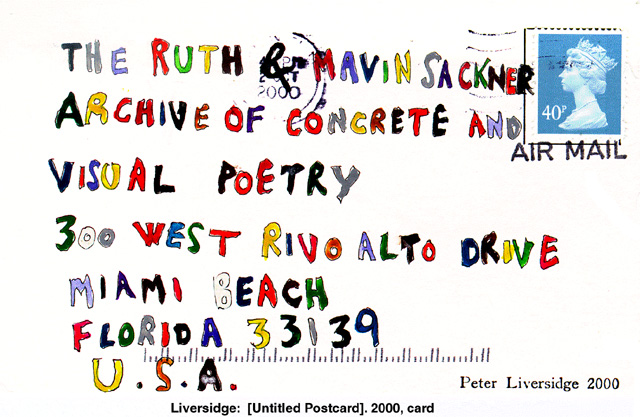 THE RUTH & MAVIN SACKNER
ARCHIVE OF CONCRETE AND
VISUAL POETRY
300 WEST RIVO ALTO DRIVE
MIAMI BEACH
FLORIDA 33139
U.S.A.
2000
40P
AIR MAIL
Peter Liversidge 2000
Liversidge: [Untitled Postcard]. 2000, card